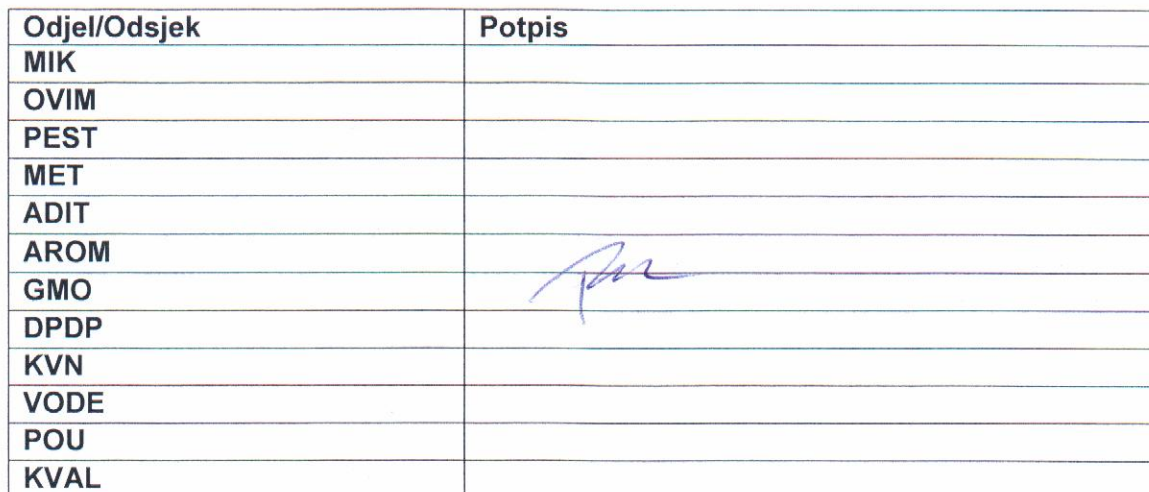 Odjel/Odsjek Potpis
MIK
OVIM
PEST
MET
ADIT
AROM
GMO
DPDP
KVN
VODE
POU
KVAL